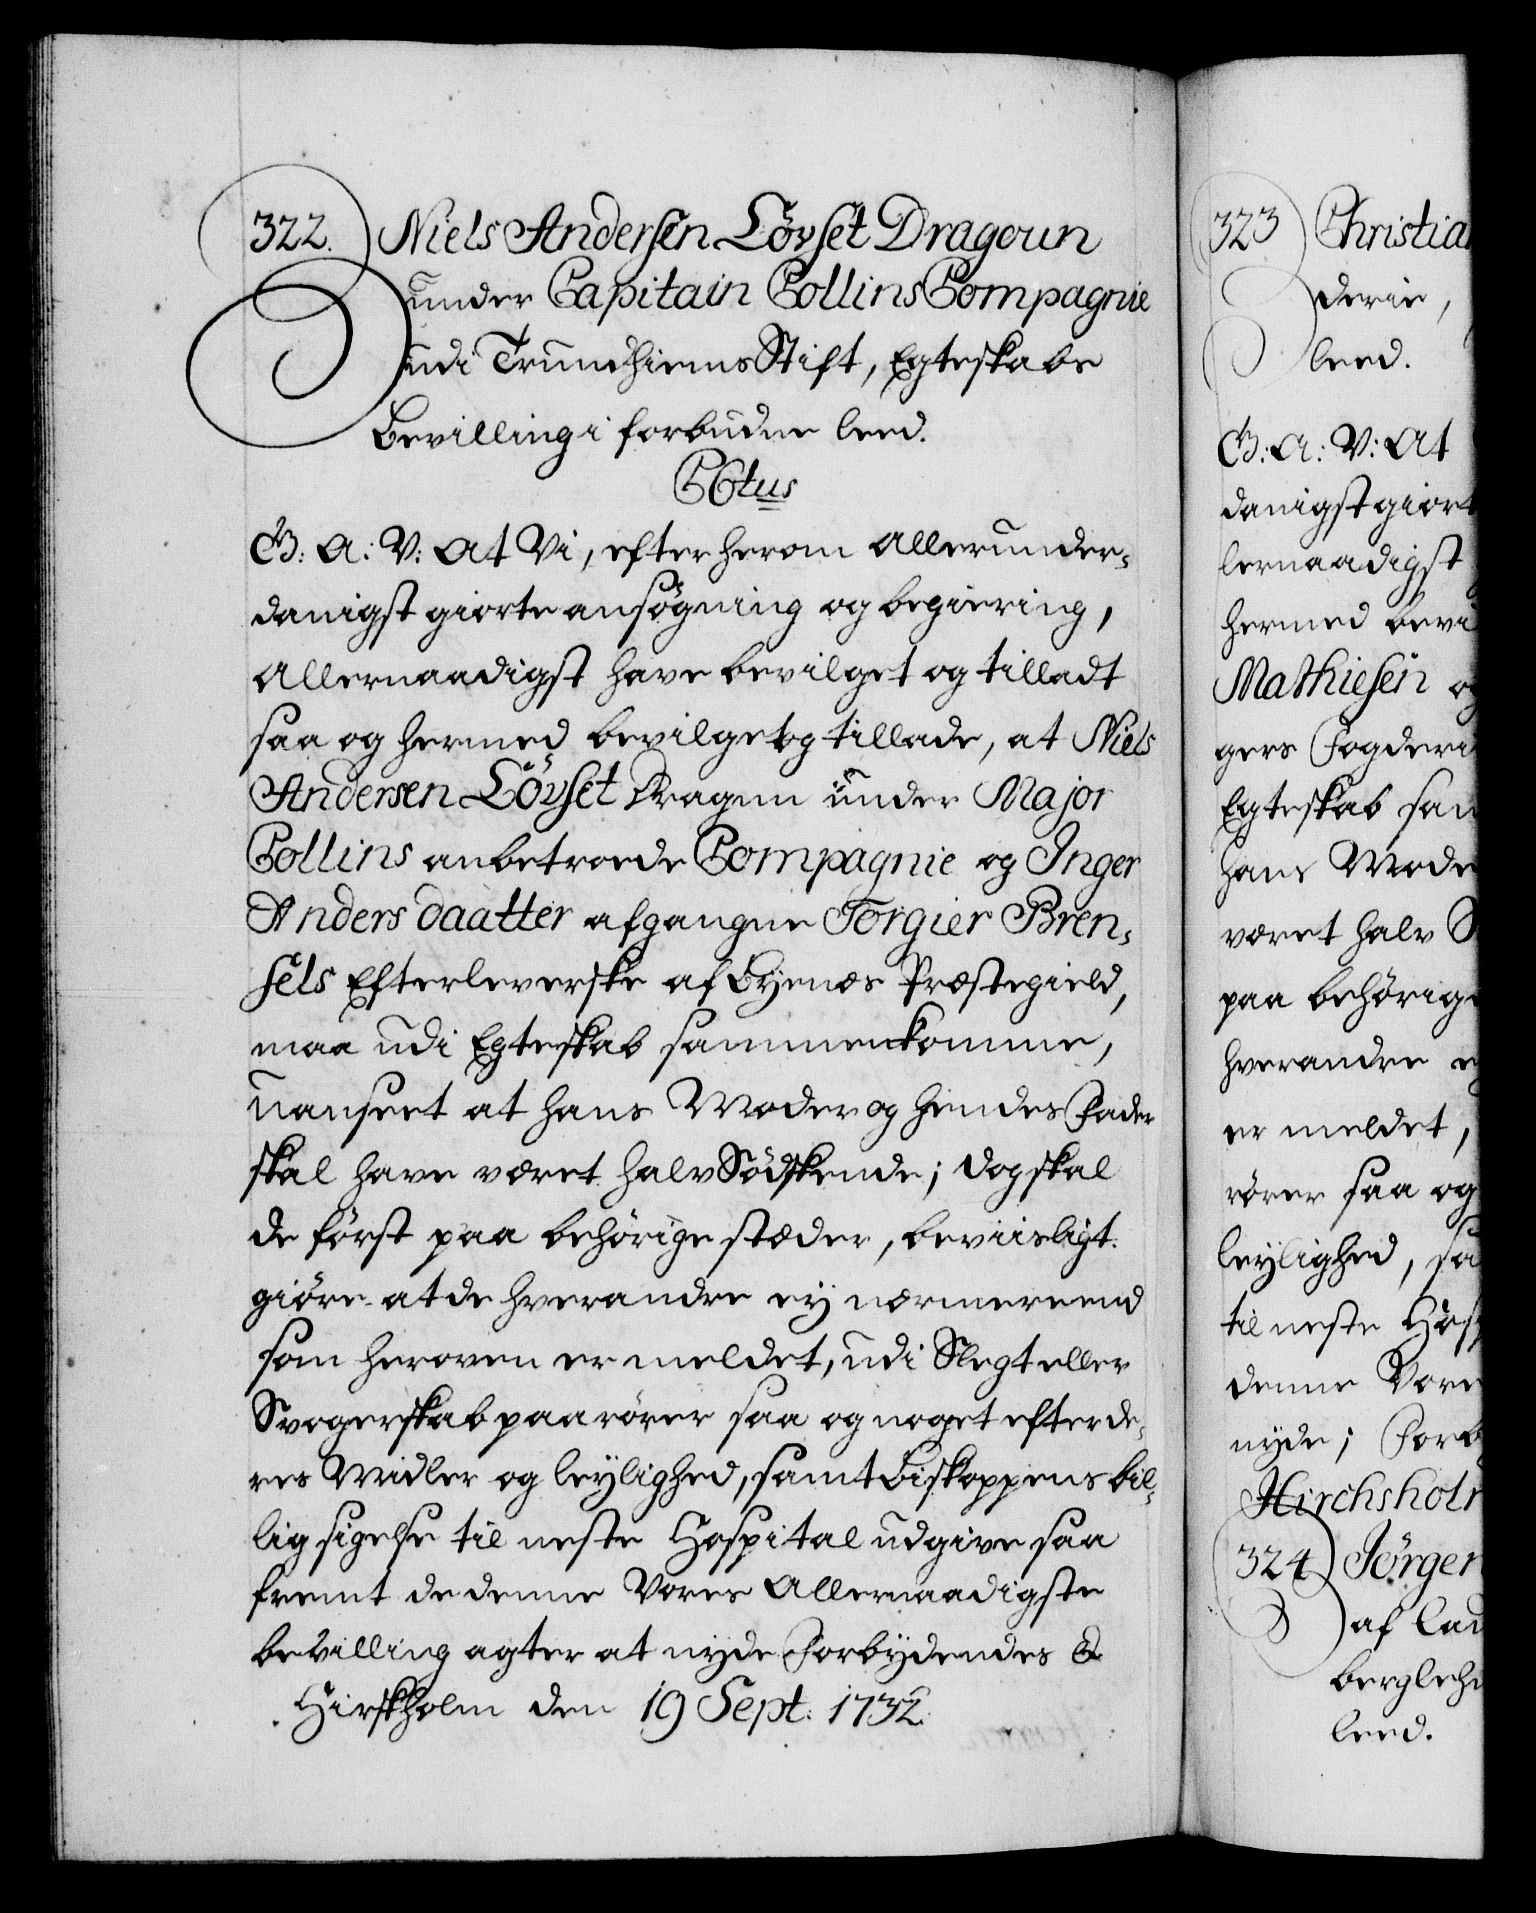 322. Niels Andersen Lövset Dragoun
under Capitain Collins Compagnie
udi Trundhiems Stift, Egteskabs
Bevilling i forbudne leed.
C6tus
G: A: V: At Vi, efter herom allerunder-
danigst giorte ansøgning og begiering,
allernaadigst have bevilget og tilladt
saa og hermed bevilget og tillade, at Niels
Andersen Lövset Dragun under Major
Collins anbetroede Compagnie og Inger
Anders daatter afgangne Torgier Bren-
sels Efterleverske af Byenæs Præstegield,
maa udi Egteskab sammenkomme,
uanseet at hans Moder og hendes Fader
skal have været halv Södskende; dog skal
de först paa behörige stæder, beviisligt
giöre at de hverandre ey nærmere end
som heroven er meldet, udi Slegt eller
Svogerskab paarører saa og noget efter de-
res Midler og leylighed, samt Biskoppens bil-
lig sigelse til neste Hospital udgive saa
fremt de denne Vores Allernaadigste
bevilling agter at nyde Forbydendes &
Hirskholm den 19 Sept: 1732.
323 Christia
derie,
leed.
G: A: V: At
danigst giort
lernaadigst
hermed bevi
Mathiesen og
gers Fogderi
Egteskab sam
hans Mode
været halv S
paa behörige
hverandre e
er meldet,
rører saa og
leylighed, sa
til neste Hosp
denne Vore
nyde; Forb
Hirchsholm
324 Jörgen
af Lau
bergleh
leed.